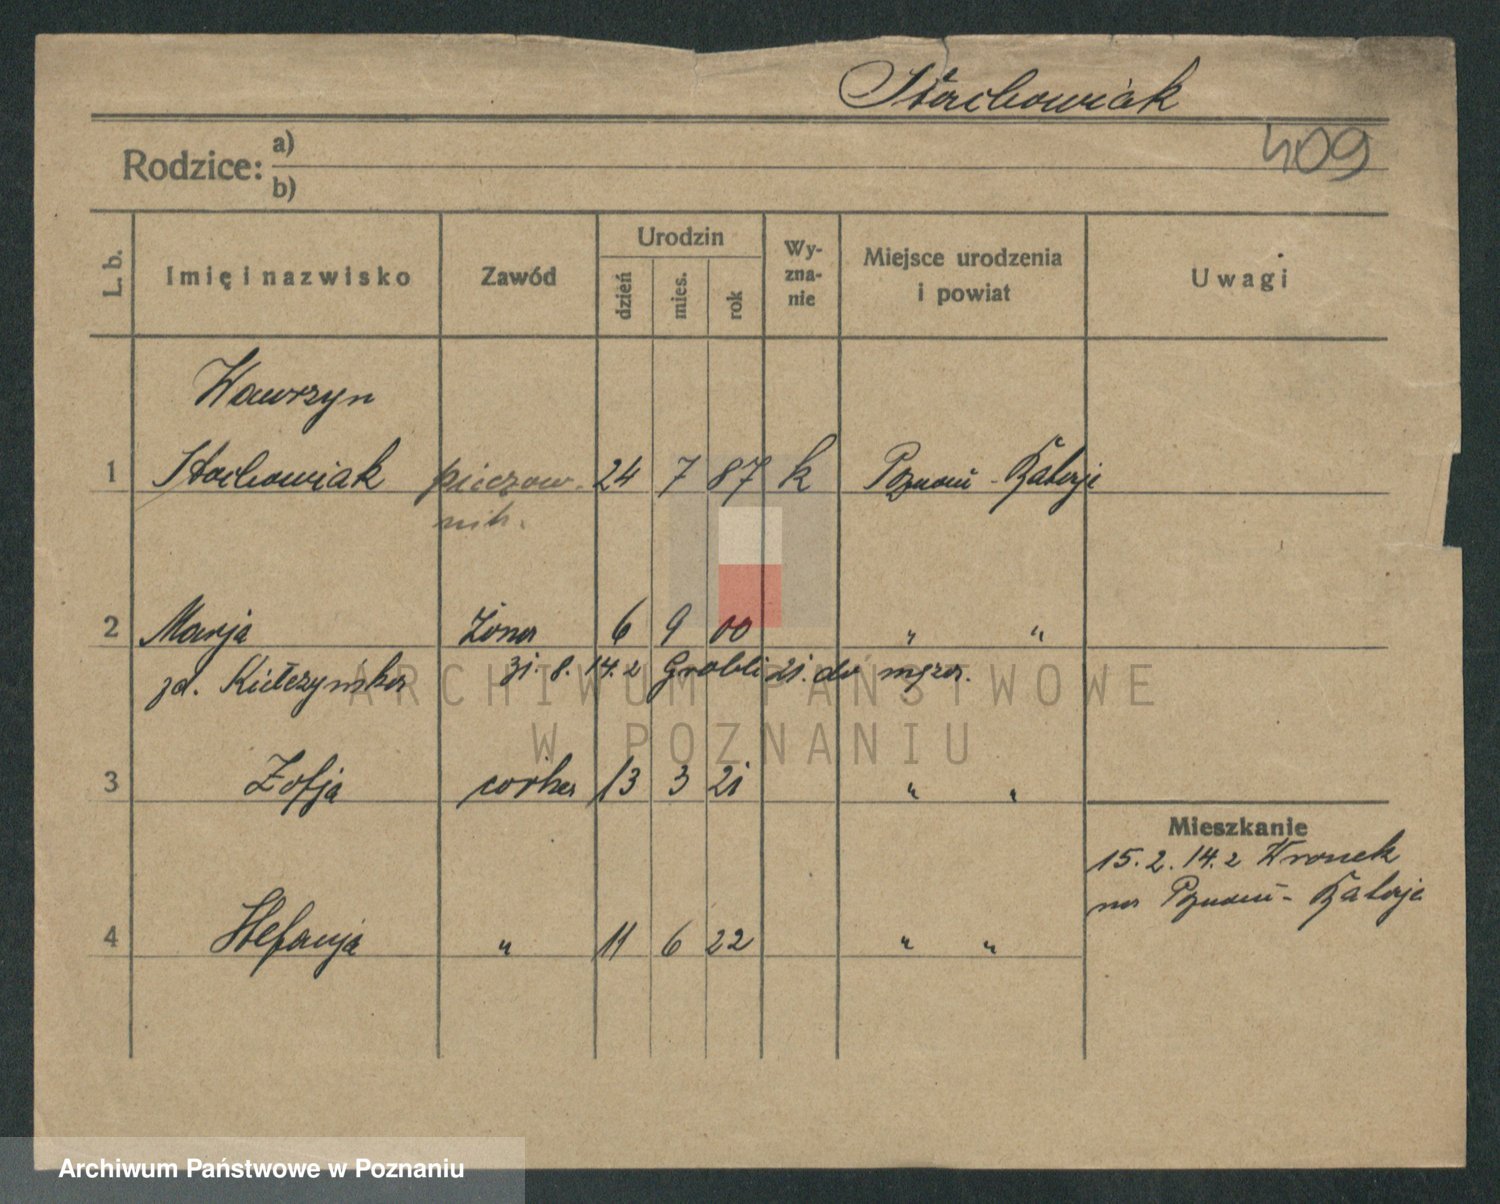 Stachowiak
409
Rodzice: a)
b)
L. b.
Imię i nazwisko
Zawód
Urodzin
dzień
mies.
rok
Wy-
zna-
nie
Miejsce urodzenia
i powiat
Uwagi
Wawrzyn
1 Stachowiak 24 7 87 k Poznań -
2 Marja żona 6 9 00 " "
31. 8. 14.2 Grobli 21. do
3 Zofja córka 13 3 21 " "
Mieszkanie
15. 2. 14.2 Wronek
na Poznań -
4 Stefanja " 11 6 22 " "
ARCHIWUM PAŃSTWOWE
W POZNANIU
Archiwum Państwowe w Poznaniu